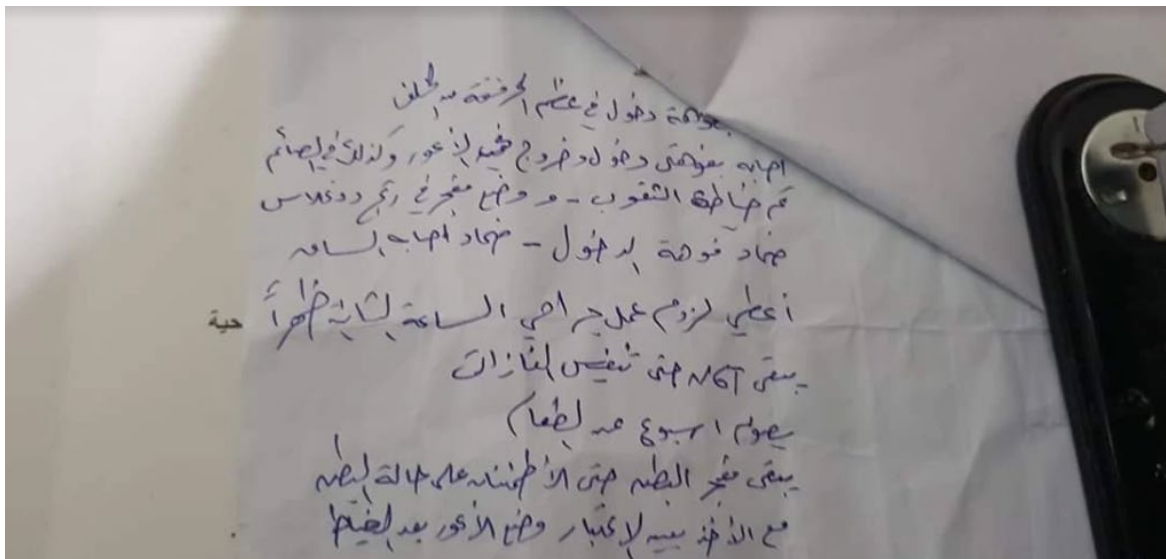 بفوهة دخول في عظم الحرقفة من الخلف
اصابه بفوهتي دخول وخروج في الأعور وكذلك في الصائم
تم خياطة الثقوب - و وضع مفجر في رتج دوغلاس
ضماد فوهة الدخول - ضماد اصابه الساق
أعطي لزوم عمل جراحي الساعة الثانية ظهراً
حية
يبقى NGT حتى تنفيس الغازات
يصوم اسبوع عن الطعام
يبقى مفجر البطن حتى الأطمئنان على حالة البطن
مع الأخذ بعين الإعتبار وضع الأعور بعد الخياطة